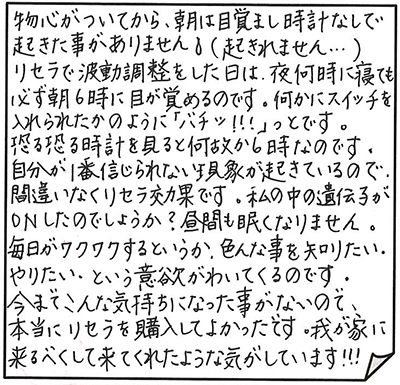 物心がついてから、朝は目覚まし時計なしで
起きた事がありません。(起きれません…)
リセラで波動調整をした日は、夜何時に寝ても
必ず朝6時に目が覚めるのです。何かにスイッチを
入れられたかのように「バチッ!!!」っとです。
恐る恐る時計を見ると何故か6時なのです。
自分が1番信じられない現象が起きているので、
間違いなくリセラ効果です。私の中の遺伝子が
ONしたのでしょうか?昼間も眠くなりません。
毎日がワクワクするというか、色んな事を知りたい・
やりたい・という意欲がわいてくるのです。
今までこんな気持ちになった事がないので、
本当にリセラを購入してよかったです。我が家に
来るべくして来てくれたような気がしています!!!